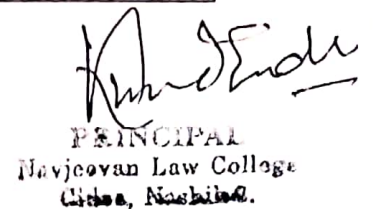 PRINCIPAL
Navjeevan Law College
Cidco, Nashik-9.